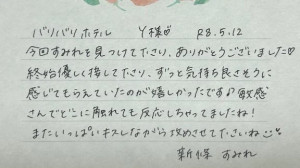 バリバリホテル Y様♡ R8.5.12
今回すみれを見つけて下さり、ありがとうございました♡
終始優しく接して下さり、ずっと気持ち良さそうに
感じてもらえていたのが嬉しかったです♪敏感
さんでどこに触れても反応しちゃってましたね!
またいっぱいキスしながら攻めさせて下さいね
新條 すみれ